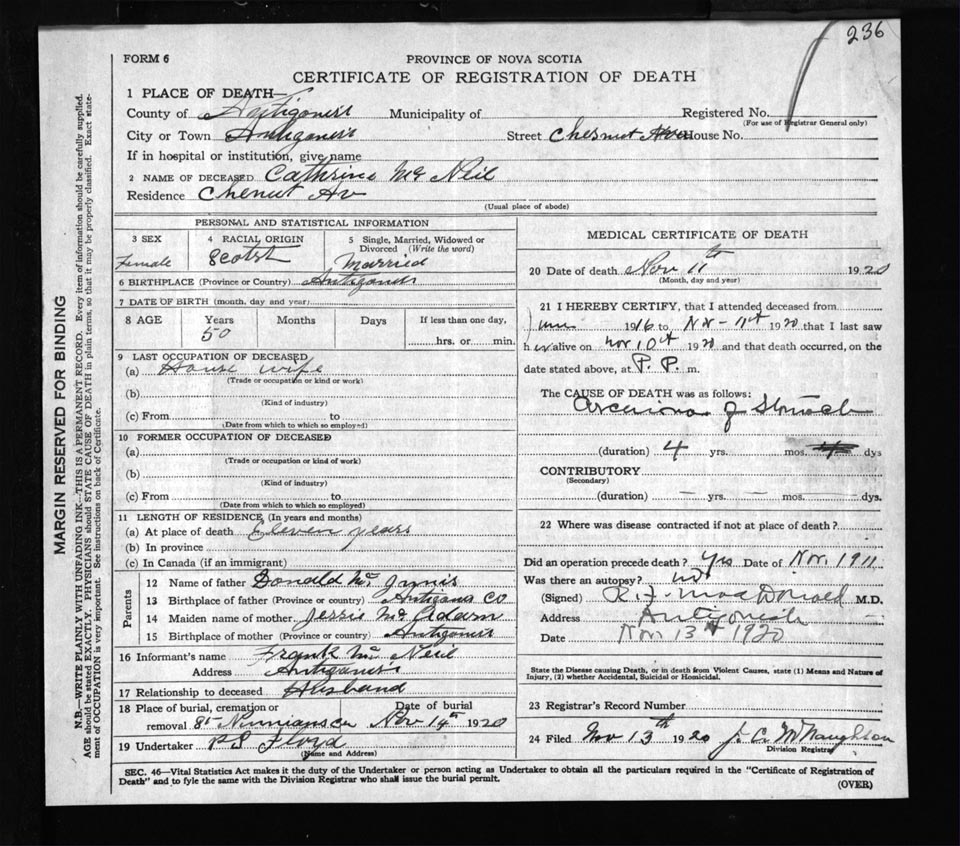 236
FORM 6
PROVINCE OF NOVA SCOTIA
CERTIFICATE OF REGISTRATION OF DEATH
1 PLACE OF DEATH—
County of Antigonish Municipality of Registered No.
(For use of Registrar General only)
City or Town Antigonish Street Chesnut Ave House No.
If in hospital or institution, give name
2 NAME OF DECEASED Cathrine Mc Neil
Residence Chenut Av
(Usual place of abode)
PERSONAL AND STATISTICAL INFORMATION
3 SEX 4 RACIAL ORIGIN 5 Single, Married, Widowed or Divorced (Write the word)
Female Scotch Married
6 BIRTHPLACE (Province or Country) Antigonish
7 DATE OF BIRTH (month, day and year)
8 AGE Years Months Days If less than one day,
50 hrs. or min.
9 LAST OCCUPATION OF DECEASED
(a) House wife
(Trade or occupation or kind or work)
(b)
(Kind of industry)
(c) From to
(Date from which to which so employed)
10 FORMER OCCUPATION OF DECEASED
(a)
(Trade or occupation or kind of work)
(b)
(Kind of industry)
(c) From to
(Date from which to which so employed)
11 LENGTH OF RESIDENCE (In years and months)
(a) At place of death Eleven years
(b) In province
(c) In Canada (if an immigrant)
Parents
12 Name of father Donald Mc Innis
13 Birthplace of father (Province or country) Antigonis Co
14 Maiden name of mother Jessie Mc Adam
15 Birthplace of mother (Province or country) Antigonish
16 Informant's name Frank Mc Neil
Address Antigonish
17 Relationship to deceased Husband
18 Place of burial, cremation or Date of burial
removal St Ninnians Cem Nov 14th 1920
19 Undertaker P S Floyd
(Name and Address)
MEDICAL CERTIFICATE OF DEATH
20 Date of death Nov 11th 1920
(Month, day and year)
21 I HEREBY CERTIFY, that I attended deceased from
June 1916 to Nov - 11th 1920 that I last saw
her alive on Nov 10th 1920 and that death occurred, on the
date stated above, at P. P. m.
The CAUSE OF DEATH was as follows:
of Stomach
(duration) 4 yrs. mos. dys
CONTRIBUTORY
(Secondary)
(duration) — yrs. — mos. — dys.
22 Where was disease contracted if not at place of death?
Did an operation precede death? Yes Date of Nov. 1911
Was there an autopsy? no
(Signed) R. F. MacDonald M.D.
Address Antigonish
Date Nov 13th 1920
State the Disease causing Death, or in death from Violent Causes, state (1) Means and Nature of
Injury, (2) whether Accidental, Suicidal or Homicidal.
23 Registrar's Record Number
24 Filed Nov 13th 1920 J. C. McNaughton
Division Registrar
SEC. 46—Vital Statistics Act makes it the duty of the Undertaker or person acting as Undertaker to obtain all the particulars required in the "Certificate of Registration of
Death" and to fyle the same with the Division Registrar who shall issue the burial permit.
(OVER)
MARGIN RESERVED FOR BINDING
N.B.—WRITE PLAINLY WITH UNFADING INK—THIS IS A PERMANENT RECORD. Every item of information should be carefully supplied.
AGE should be stated EXACTLY. PHYSICIANS should STATE CAUSE OF DEATH in plain terms, so that it may be properly classified. Exact state-
ment of OCCUPATION is very important. See instructions on back of Certificate.